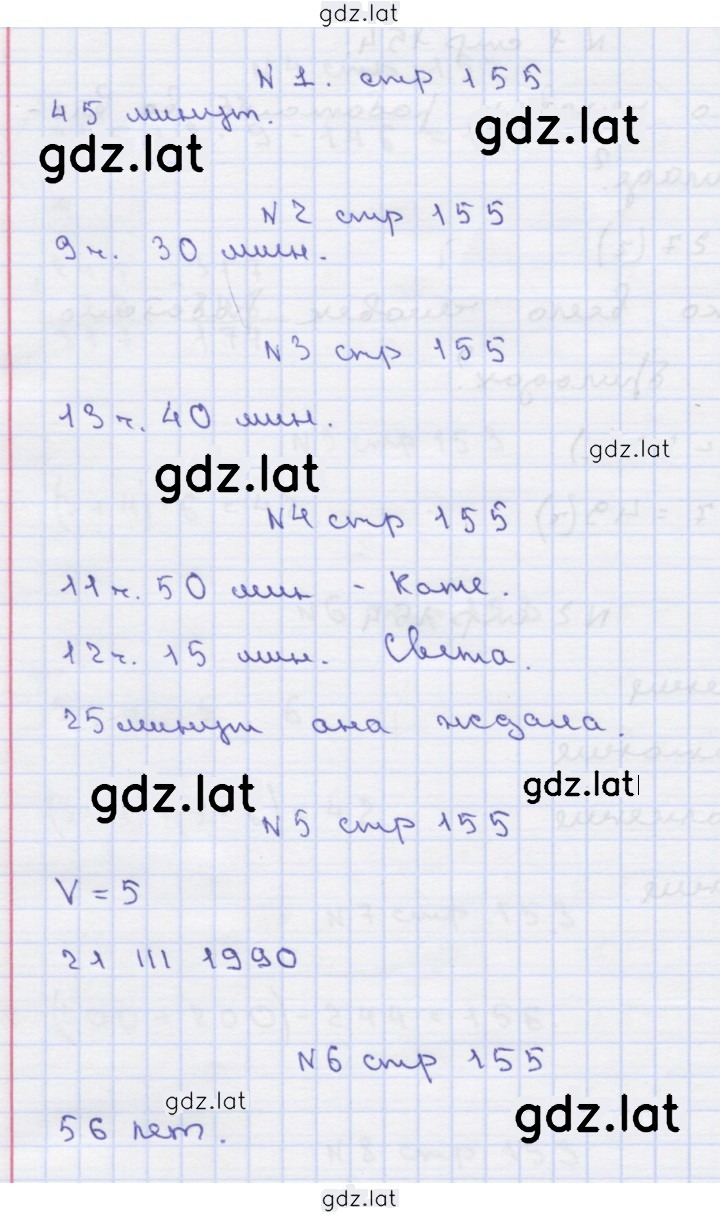 gdz.lat
N 1. стр 155
45 минут.
gdz.lat
gdz.lat
N2 стр 155
9 ч. 30 мин.
N3 стр 155
13 ч. 40 мин.
gdz.lat
gdz.lat
N4 стр 155
11 ч. 50 мин - Кате.
12 ч. 15 мин. Света.
25 минут она ждала.
gdz.lat
gdz.lat
N5 стр 155
V = 5
21 III 1990
N6 стр 155
gdz.lat
gdz.lat
56 лет.
gdz.lat